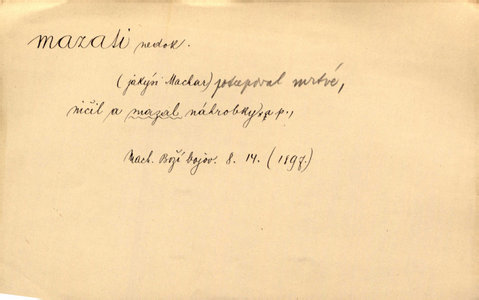 mazati nedok.
(jakýsi Machar) potupoval mrtvé,
ničil a mazal náhrobky a p.,
Mach. Boží bojov. 8. 14. (1897.)